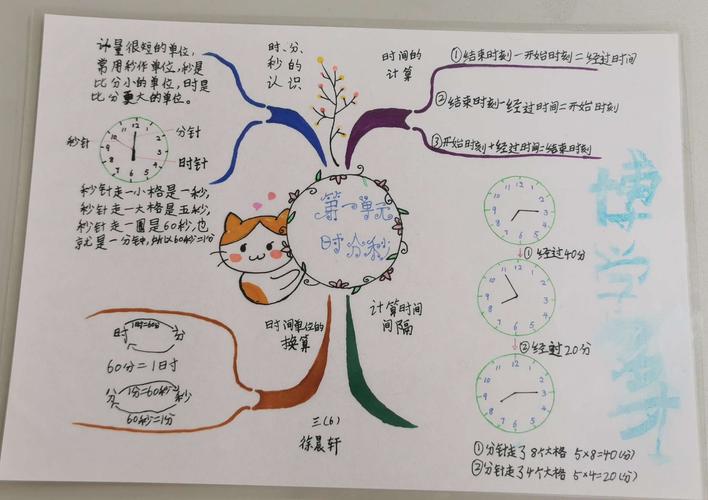 计量很短的单位,
常用秒作单位,秒是
比分小的单位,时是
比分更大的单位。
秒针
分针
时针
秒针走一小格是一秒,
秒针走一大格是五秒,
秒针走一圈是60秒,也
就是一分钟,所以60秒=1分
时、分、
秒的
认识
时间的
计算
①结束时刻-开始时刻=经过时间
②结束时刻-经过时间=开始时刻
③开始时刻+经过时间=结束时刻
第一单元
时分秒
时间单位的
换算
时 1时=60分 分
60分=1时
分 1分=60秒 秒
60秒=1分
计算时间
间隔
①经过40分
②经过20分
①分针走了8个大格 5×8=40(分)
②分针走了4个大格 5×4=20(分)
三(6)
徐晨轩